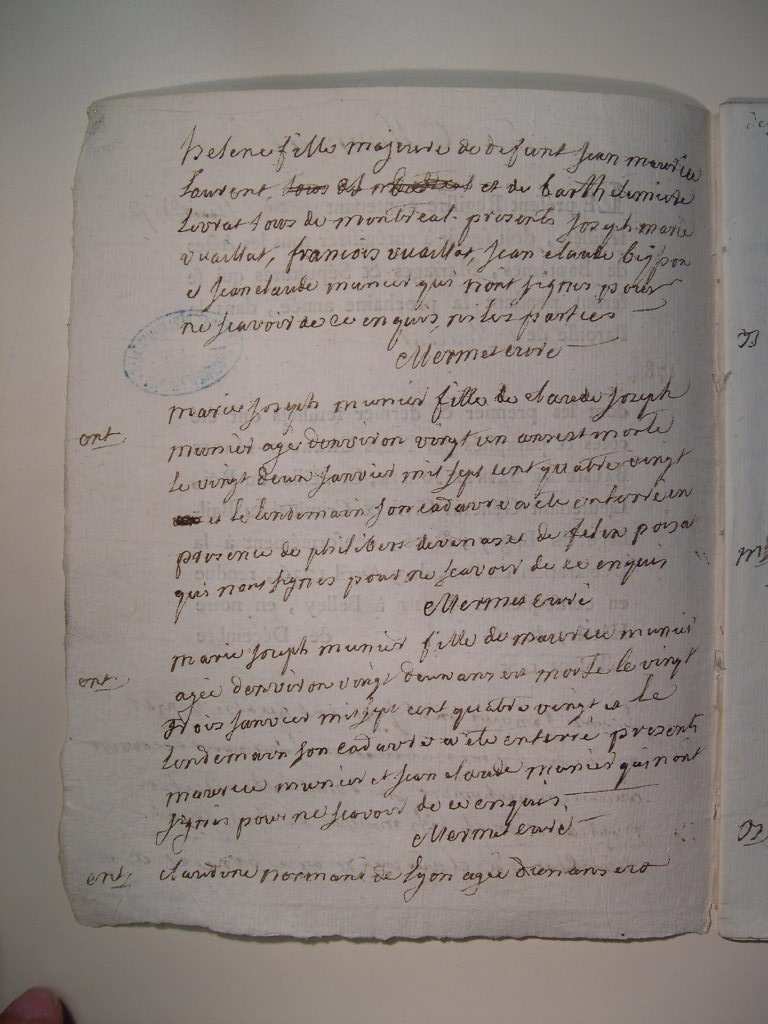 helene fille majeure de defunt Jean maurice
laurent, et de barthelemiere
livrat tous de montreal. presents Joseph marie
vuaillat, francois vuaillat, Jean claude
et Jean claude munier qui nont signes pour
ne scavoir de ce enquis, ni les parties
Mermet curé
ent. marie Joseph munier fille de claude Joseph
munier agé denviron vingt un ans est morte
le vingt deux Janvier mil sept cent quatre vingt
et le lendemain son cadavre a ete enterré en
presence de philibert devenas et de felix
qui nont signes pour ne scavoir de ce enquis
Mermet curé
ent. marie Joseph munier fille de maurice munier
agée denviron vingt deux ans est morte le vingt
trois Janvier mil sept cent quatre vingt et le
lendemain son cadavre a ete enterré presents
maurice munier et Jean claude munier qui nont
signes pour ne scavoir de ce enquis.
Mermet curé
ent. claudine normand de lyon agée dun ans et